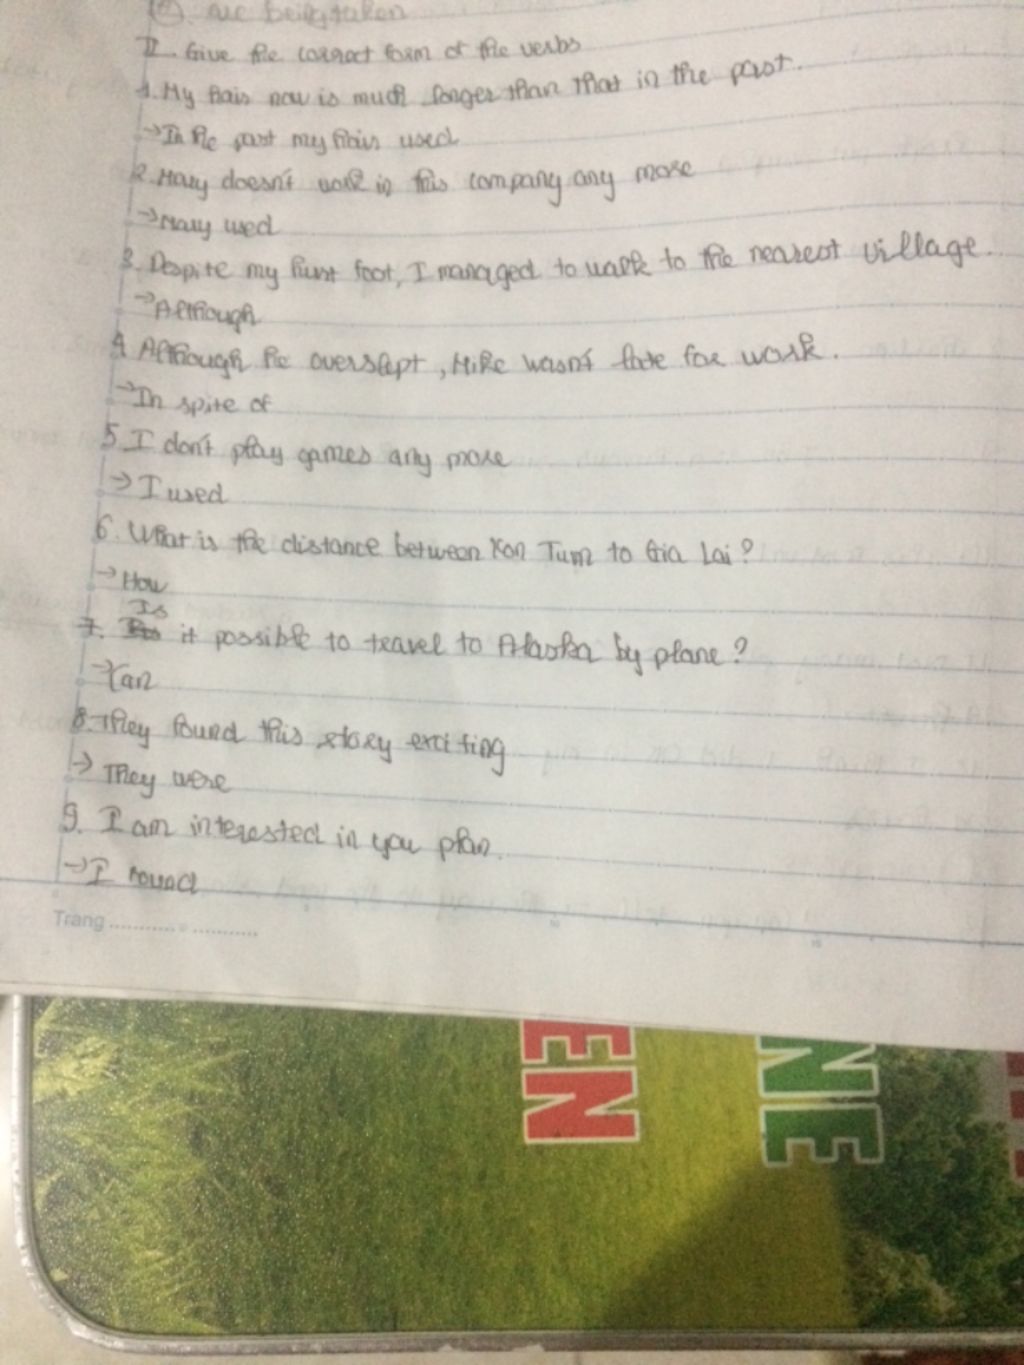 are being taken
II. Give the correct form of the verbs
1. My hair now is much longer than that in the past.
→In the past my hair used
2. Mary doesn't work in this company any more
→Mary used
3. Despite my hurt foot, I managed to walk to the nearest village.
→Although
4. Although he overslept, Mike wasn't late for work.
→In spite of
5. I don't play games any more
→I used
6. What is the distance between Kon Tum to Gia Lai?
→How
7. Is it possible to travel to Alaska by plane?
→Can
8. They found this story exciting
→They were
9. I am interested in you plan.
→I found
Trang
EN
NE